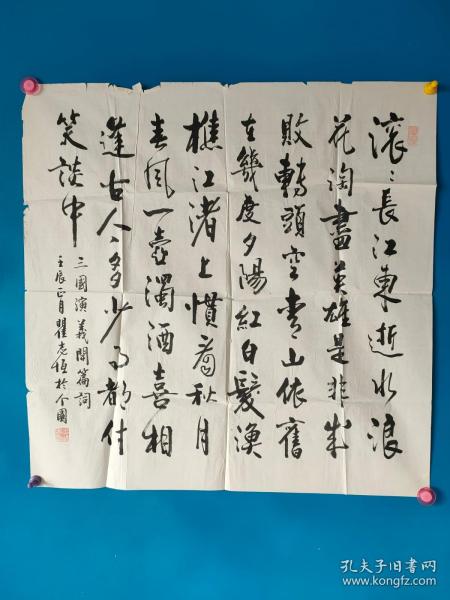 滚〻長江東逝水浪
花淘盡英雄是非成
敗轉頭空青山依舊
在幾度夕陽紅白髮漁
樵江渚上慣看秋月
春風一壺濁酒喜相
逢古今多少事都付
笑談中
三國演義開篇詞
壬辰正月瞿志恒於个園
孔夫子旧书网
www.kongfz.com